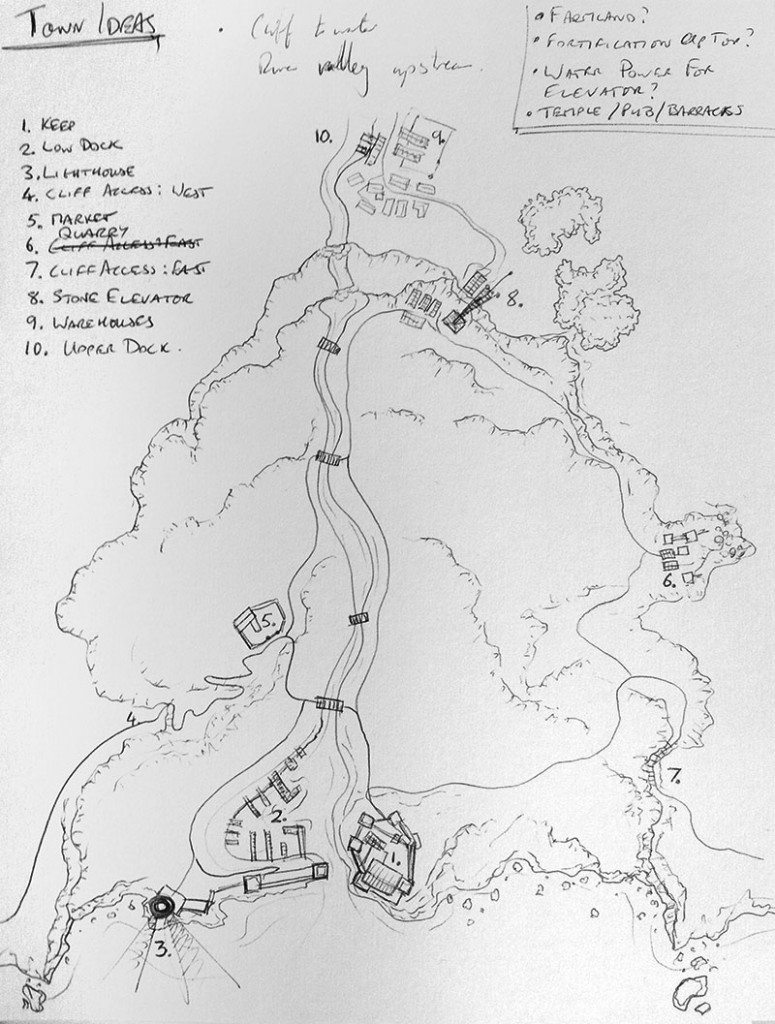 TOWN IDEAS
• Cliff to water
River valley upstream.
• FARMLAND?
• FORTIFICATION ON TOP?
• WATER POWER FOR
ELEVATOR?
• TEMPLE / PUB / BARRACKS
1. KEEP
2. LOW DOCK
3. LIGHTHOUSE
4. CLIFF ACCESS: WEST
5. MARKET
QUARRY
6. CLIFF ACCESS: EAST
7. CLIFF ACCESS: EAST
8. STONE ELEVATOR
9. WAREHOUSES
10. UPPER DOCK.
10.
9.
8.
6.
5.
4.
7.
2.
1.
3.